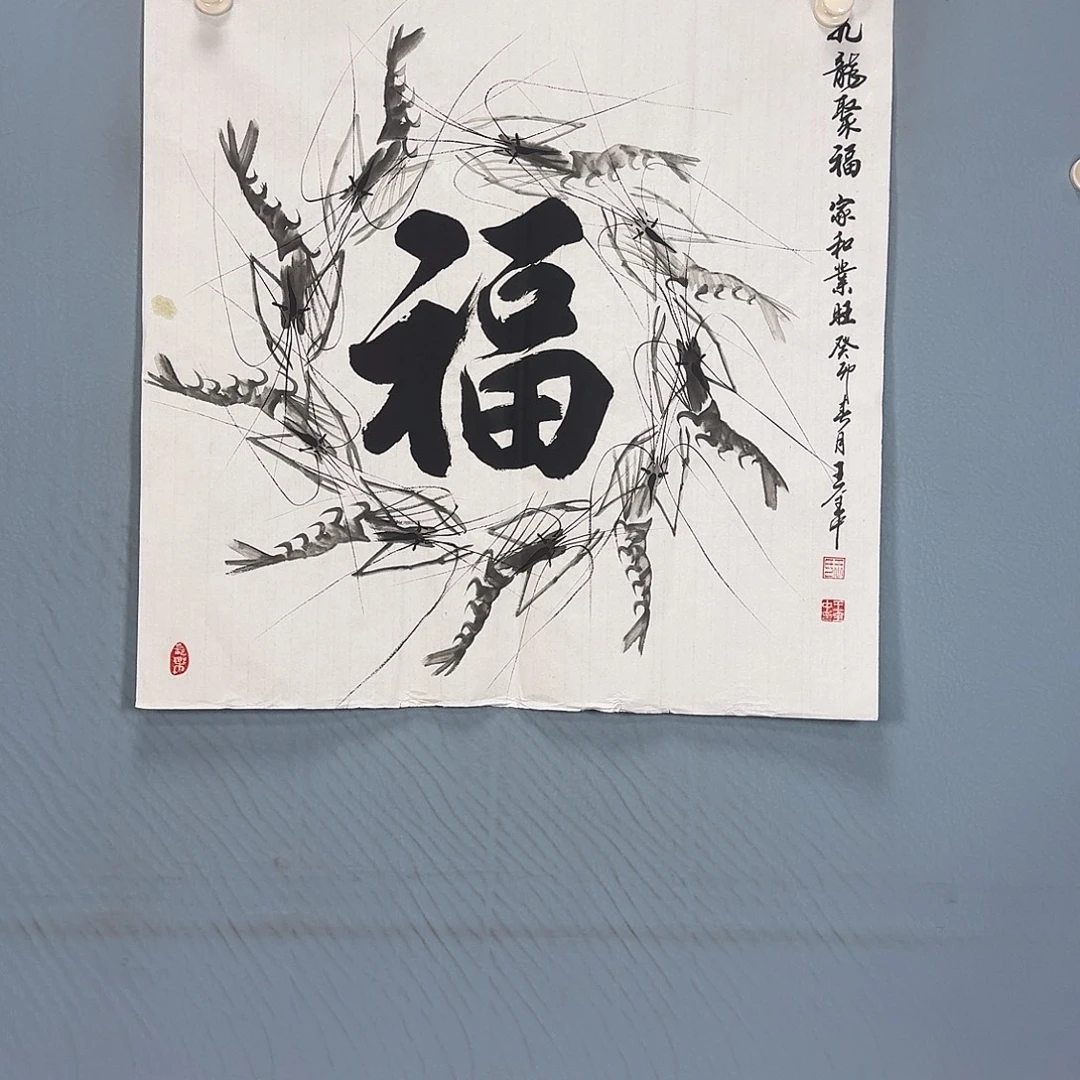 福
九龍聚福 家和業旺 癸卯春月王军